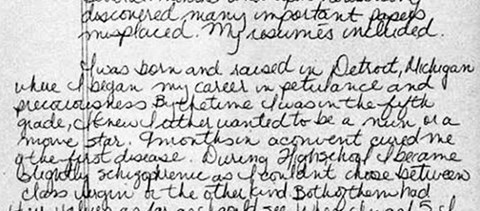 discovered many important papers
misplaced. My resumés included.
I was born and raised in Detroit, Michigan
where I began my career in petulance and
preciousness By the time I was in the fifth
grade, I knew I either wanted to be a nun or a
movie star. 9 months in a convent cured me
of the first disease. During Highschool I became
slightly schizophrenic as I couldn't choose between
class virgin or the other kind Both of them had